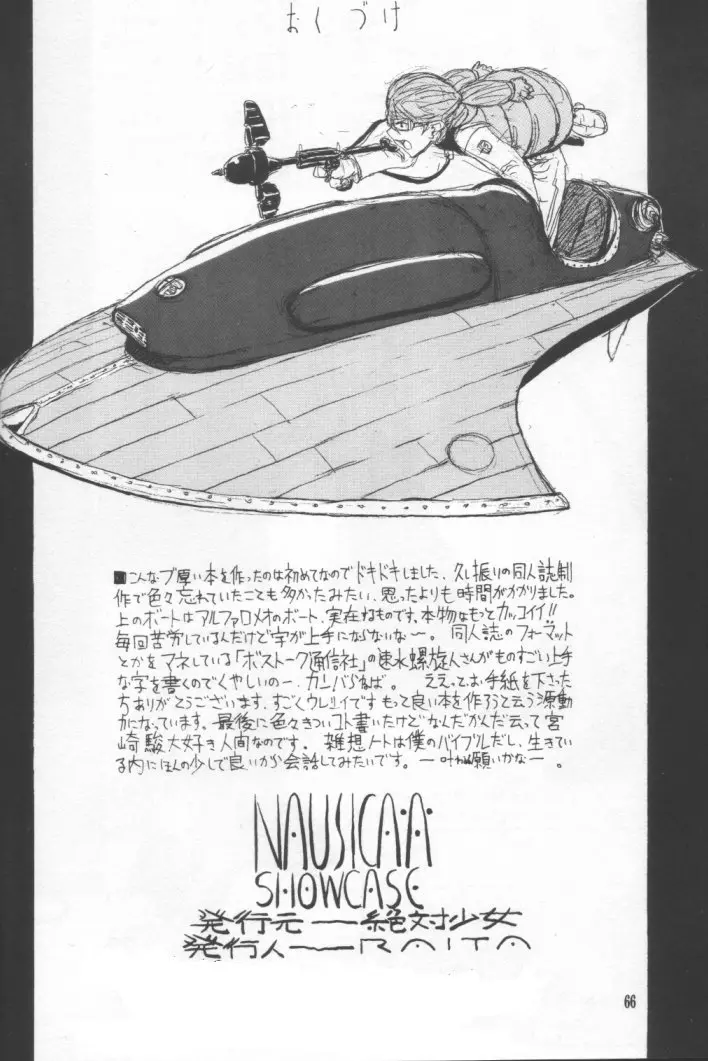 おくづけ
■こんなブ厚い本を作ったのは初めてなのでドキドキしました。久し振りの同人誌制
作で色々忘れていたことも多かったみたい、思ったよりも時間がかかりました。
上のボートはアルファロメオのボート、実在ねものです。本物なもっとカッコイイ!!
毎回苦労しているんだけど字が上手にならないな〜。 同人誌のフォーマット
とかをマネしている「ボストーク通信社」の速水螺旋人さんがものすごい上手
な字を書くのでくやしいのー、ガンバらねば。 ええってお手紙を下さった
方ありがとうございます、すごくウレシイです もって良い本を作ろうと云う源動
力になっています。最後に色々きついコト書いたけどなんだかんだ云って宮
崎駿大好き人間なのです。 雑想ノートは僕のバイブルだし、生きてい
る内にほんの少しで良いから会話してみたいです。—叶わぬ願いかな— 。
NAUSICAA
SHOWCASE
発行元——絶対少女
発行人——RAITA
66